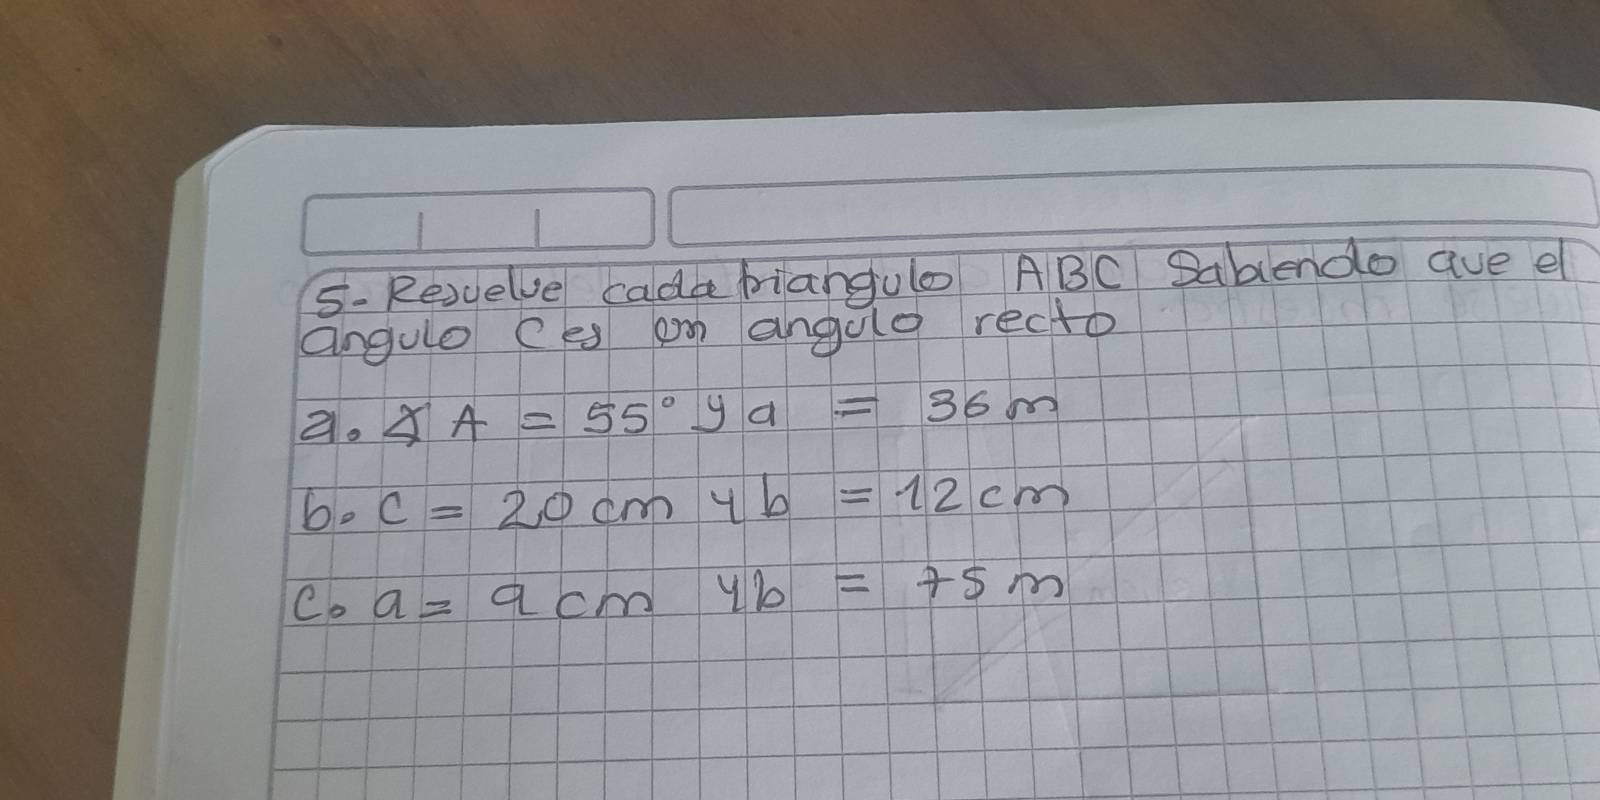 5-Resuelve cada triangulo ABC Sabiendo que el
angulo C es un angulo recto
a. ∡ A = 55° y a = 36 m
b. c = 20 cm y b = 12 cm
c. a = 9 cm y b = 75 m